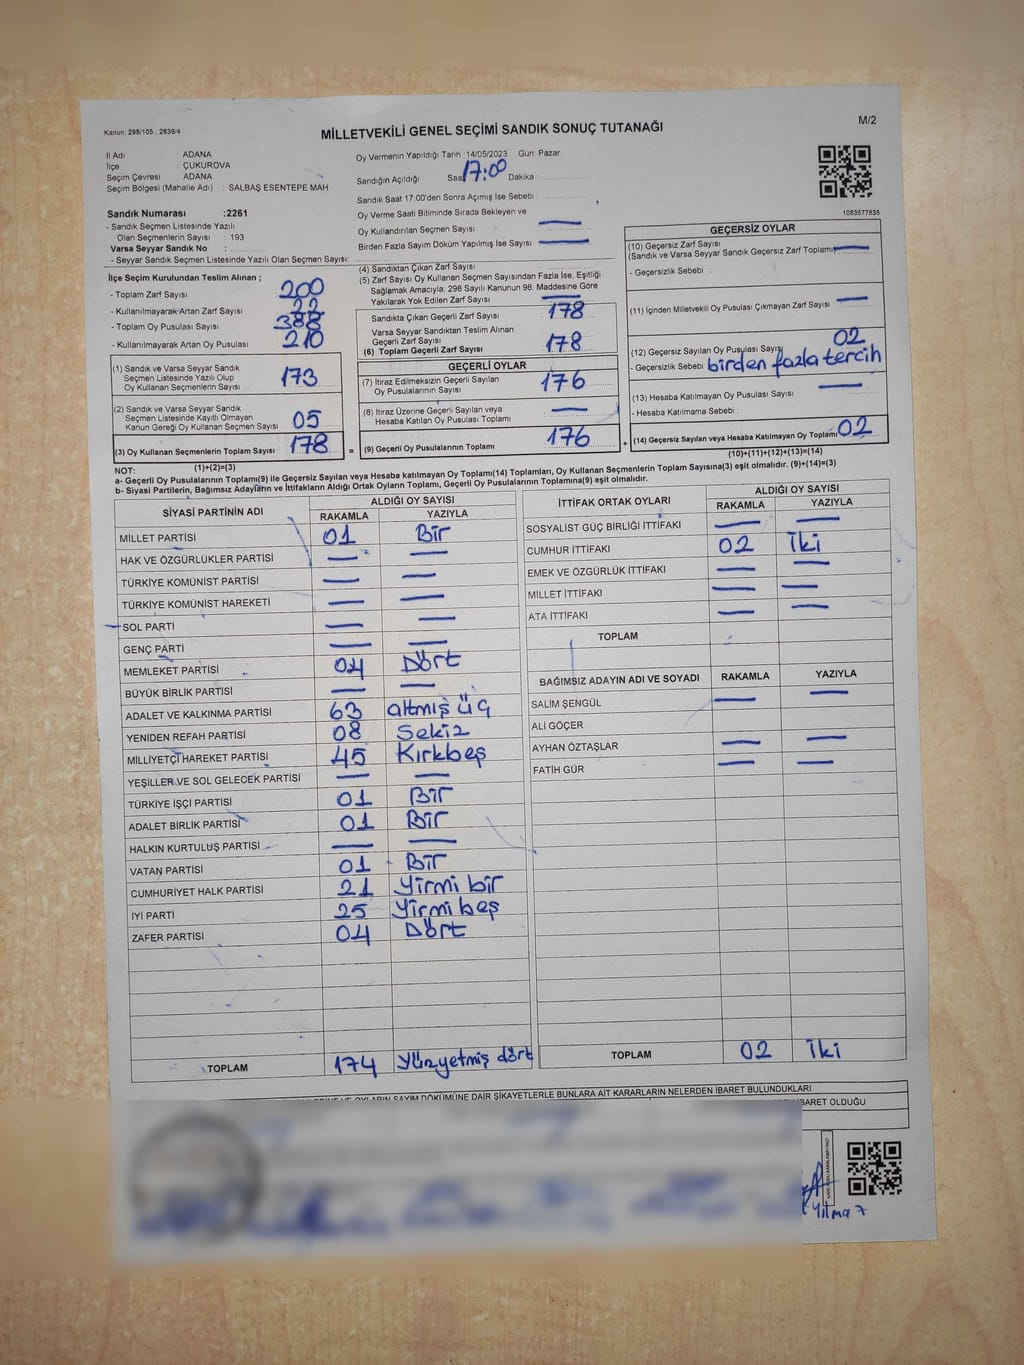 Kanun: 298/105 , 2839/4
MİLLETVEKİLİ GENEL SEÇİMİ SANDIK SONUÇ TUTANAĞI
M/2
İl Adı : ADANA
İlçe : ÇUKUROVA
Seçim Çevresi : ADANA
Seçim Bölgesi (Mahalle Adı) : SALBAŞ ESENTEPE MAH
Sandık Numarası :2261
- Sandık Seçmen Listesinde Yazılı
Olan Seçmenlerin Sayısı : 193
Varsa Seyyar Sandık No :
- Seyyar Sandık Seçmen Listesinde Yazılı Olan Seçmen Sayısı:
Oy Vermenin Yapıldığı Tarih 14/05/2023 Gün: Pazar
Sandığın Açıldığı Saat 17:00 Dakika :
Sandık Saat 17:00'den Sonra Açımış İse Sebebi :
Oy Verme Saati Bitiminde Sırada Bekleyen ve
Oy Kullandırılan Seçmen Sayısı —
Birden Fazla Sayım Döküm Yapılmış İse Sayısı —
1083577835
İlçe Seçim Kurulundan Teslim Alınan ;
- Toplam Zarf Sayısı 200
- Kullanılmayarak Artan Zarf Sayısı 22
- Toplam Oy Pusulası Sayısı 388
- Kullanılmayarak Artan Oy Pusulası 210
(1) Sandık ve Varsa Seyyar Sandık
Seçmen Listesinde Yazılı Olup
Oy Kullanan Seçmenlerin Sayısı 173
(2) Sandık ve Varsa Seyyar Sandık
Seçmen Listesinde Kayıtlı Olmayan
Kanun Gereği Oy Kullanan Seçmen Sayısı 05
(3) Oy Kullanan Seçmenlerin Toplam Sayısı 178
(1)+(2)=(3)
(4) Sandıktan Çıkan Zarf Sayısı
(5) Zarf Sayısı Oy Kullanan Seçmen Sayısından Fazla İse, Eşitliği
Sağlamak Amacıyla; 298 Sayılı Kanunun 98. Maddesine Göre
Yakılarak Yok Edilen Zarf Sayısı —
Sandıkta Çıkan Geçerli Zarf Sayısı 178
Varsa Seyyar Sandıktan Teslim Alınan
Geçerli Zarf Sayısı
(6) Toplam Geçerli Zarf Sayısı 178
GEÇERLİ OYLAR
(7) İtiraz Edilmeksizin Geçerli Sayılan
Oy Pusulalarının Toplamı 176
(8) İtiraz Üzerine Geçerli Sayılan veya
Hesaba Katılan Oy Pusulası Toplamı —
= (9) Geçerli Oy Pusulalarının Toplamı 176
GEÇERSİZ OYLAR
(10) Geçersiz Zarf Sayısı
(Sandık ve Varsa Seyyar Sandık Geçersiz Zarf Toplamı) —
- Geçersizlik Sebebi :
(11) İçinden Milletvekili Oy Pusulası Çıkmayan Zarf Sayısı —
(12) Geçersiz Sayılan Oy Pusulası Sayısı 02
- Geçersizlik Sebebi birden fazla tercih
(13) Hesaba Katılmayan Oy Pusulası Sayısı —
- Hesaba Katılmama Sebebi :
+ (14) Geçersiz Sayılan veya Hesaba Katılmayan Oy Toplamı 02
(10)+(11)+(12)+(13)=(14)
NOT:
a- Geçerli Oy Pusulaları(9) ile Geçersiz Sayılan veya Hesaba katılmayan Oy Toplamı(14) Toplamları, Oy Kullanan Seçmenlerin Toplam Sayısına(3) eşit olmalıdır. (9)+(14)=(3)
b- Siyasi Partilerin, Bağımsız Adayların ve İttifakların Aldığı Ortak Oyların Toplamı, Geçerli Oy Pusulalarının Toplamına(9) eşit olmalıdır.
SİYASİ PARTİNİN ADI
ALDIĞI OY SAYISI
RAKAMLA YAZIYLA
MİLLET PARTİSİ 01 Bir
HAK VE ÖZGÜRLÜKLER PARTİSİ — —
TÜRKİYE KOMÜNİST PARTİSİ — —
TÜRKİYE KOMÜNİST HAREKETİ — —
SOL PARTİ — —
GENÇ PARTİ — —
MEMLEKET PARTİSİ 04 Dört
BÜYÜK BİRLİK PARTİSİ — —
ADALET VE KALKINMA PARTİSİ 63 altmış üç
YENİDEN REFAH PARTİSİ 08 Sekiz
MİLLİYETÇİ HAREKET PARTİSİ 45 Kırkbeş
YEŞİLLER VE SOL GELECEK PARTİSİ — —
TÜRKİYE İŞÇİ PARTİSİ 01 Bir
ADALET BİRLİK PARTİSİ 01 Bir
HALKIN KURTULUŞ PARTİSİ — —
VATAN PARTİSİ 01 Bir
CUMHURİYET HALK PARTİSİ 21 Yirmi bir
İYİ PARTİ 25 Yirmi beş
ZAFER PARTİSİ 04 Dört
TOPLAM 174 Yüzyetmiş dört
İTTİFAK ORTAK OYLARI
ALDIĞI OY SAYISI
RAKAMLA YAZIYLA
SOSYALİST GÜÇ BİRLİĞİ İTTİFAKI — —
CUMHUR İTTİFAKI 02 İki
EMEK VE ÖZGÜRLÜK İTTİFAKI — —
MİLLET İTTİFAKI — —
ATA İTTİFAKI — —
TOPLAM
BAĞIMSIZ ADAYIN ADI VE SOYADI RAKAMLA YAZIYLA
SALİM ŞENGÜL — —
ALİ GÖÇER
AYHAN ÖZTAŞLAR — —
FATİH GÜR — —
TOPLAM 02 İki
VE OYLARIN SAYIM DÖKÜMÜNE DAİR ŞİKAYETLERLE BUNLARA AİT KARARLARIN NELERDEN İBARET BULUNDUKLARI
BARET OLDUĞU
Yılmaz